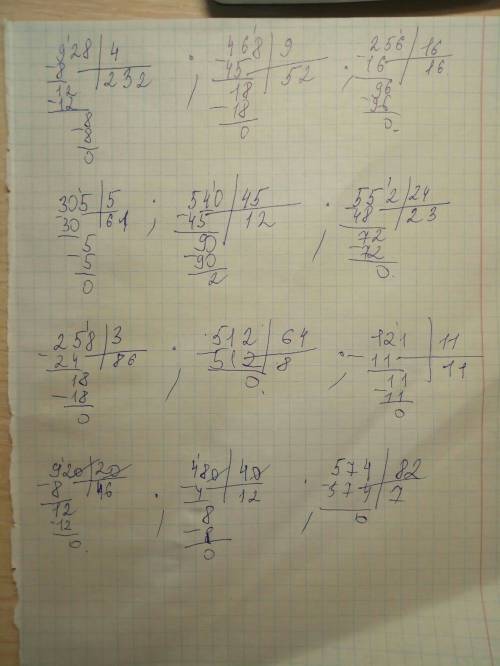 928 | 4 ; 468 | 9 ; 256 | 16
-8 | 232 -45 | 52 -16 | 16
12 18 96
-12 -18 -96
8 0 0
-8
0
305 | 5 ; 540 | 45 ; 552 | 24
-30 | 61 -45 | 12 -48 | 23
5 90 72
-5 -90 -72
0 2 0
258 | 3 ; 512 | 64 ; 121 | 11
-24 | 86 512 | 8 -11 | 11
18 0 11
-18 -11
0 0
920 | 20 ; 480 | 40 ; 574 | 82
-8 | 46 -4 | 12 -574 | 7
12 8 0
-12 -8
0 0